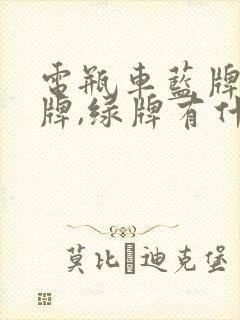 電瓶車藍牌
牌,绿牌有什
莫比迪克堡